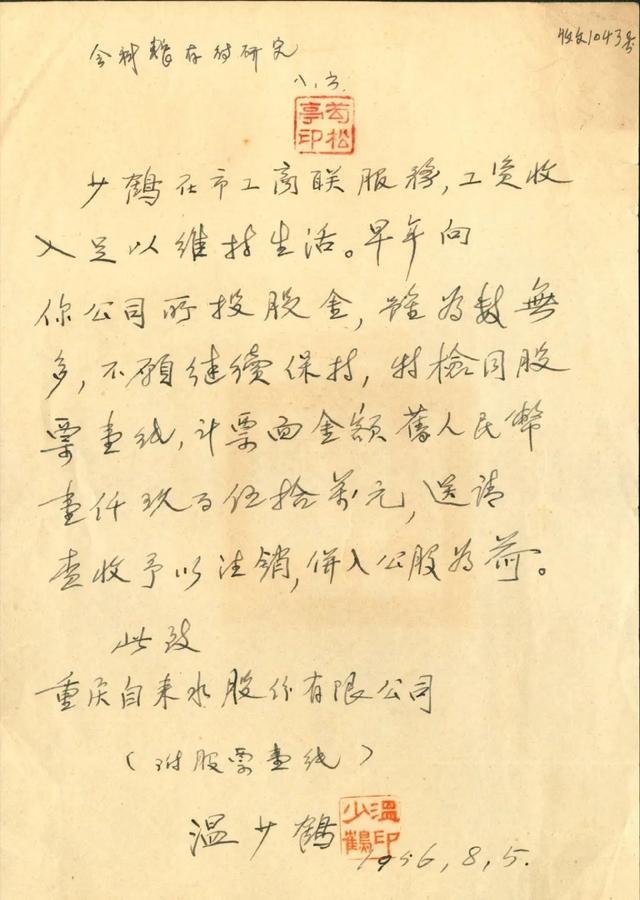 收文1043号
会科暂存待研究
八,六.
苟松亭印
少鶴在市工商联服務,工资收
入足以维持生活。早年向
你公司所投股金,雖為数無
多,不願继续保持,特檢同股
票壹纸,计票面金额舊人民幣
壹仟玖百伍拾萬元,送请
查收予以注销,併入公股為荷。
此致
重庆自来水股份有限公司
(附股票壹纸)
温少鶴
温少鶴印
1956,8,5.